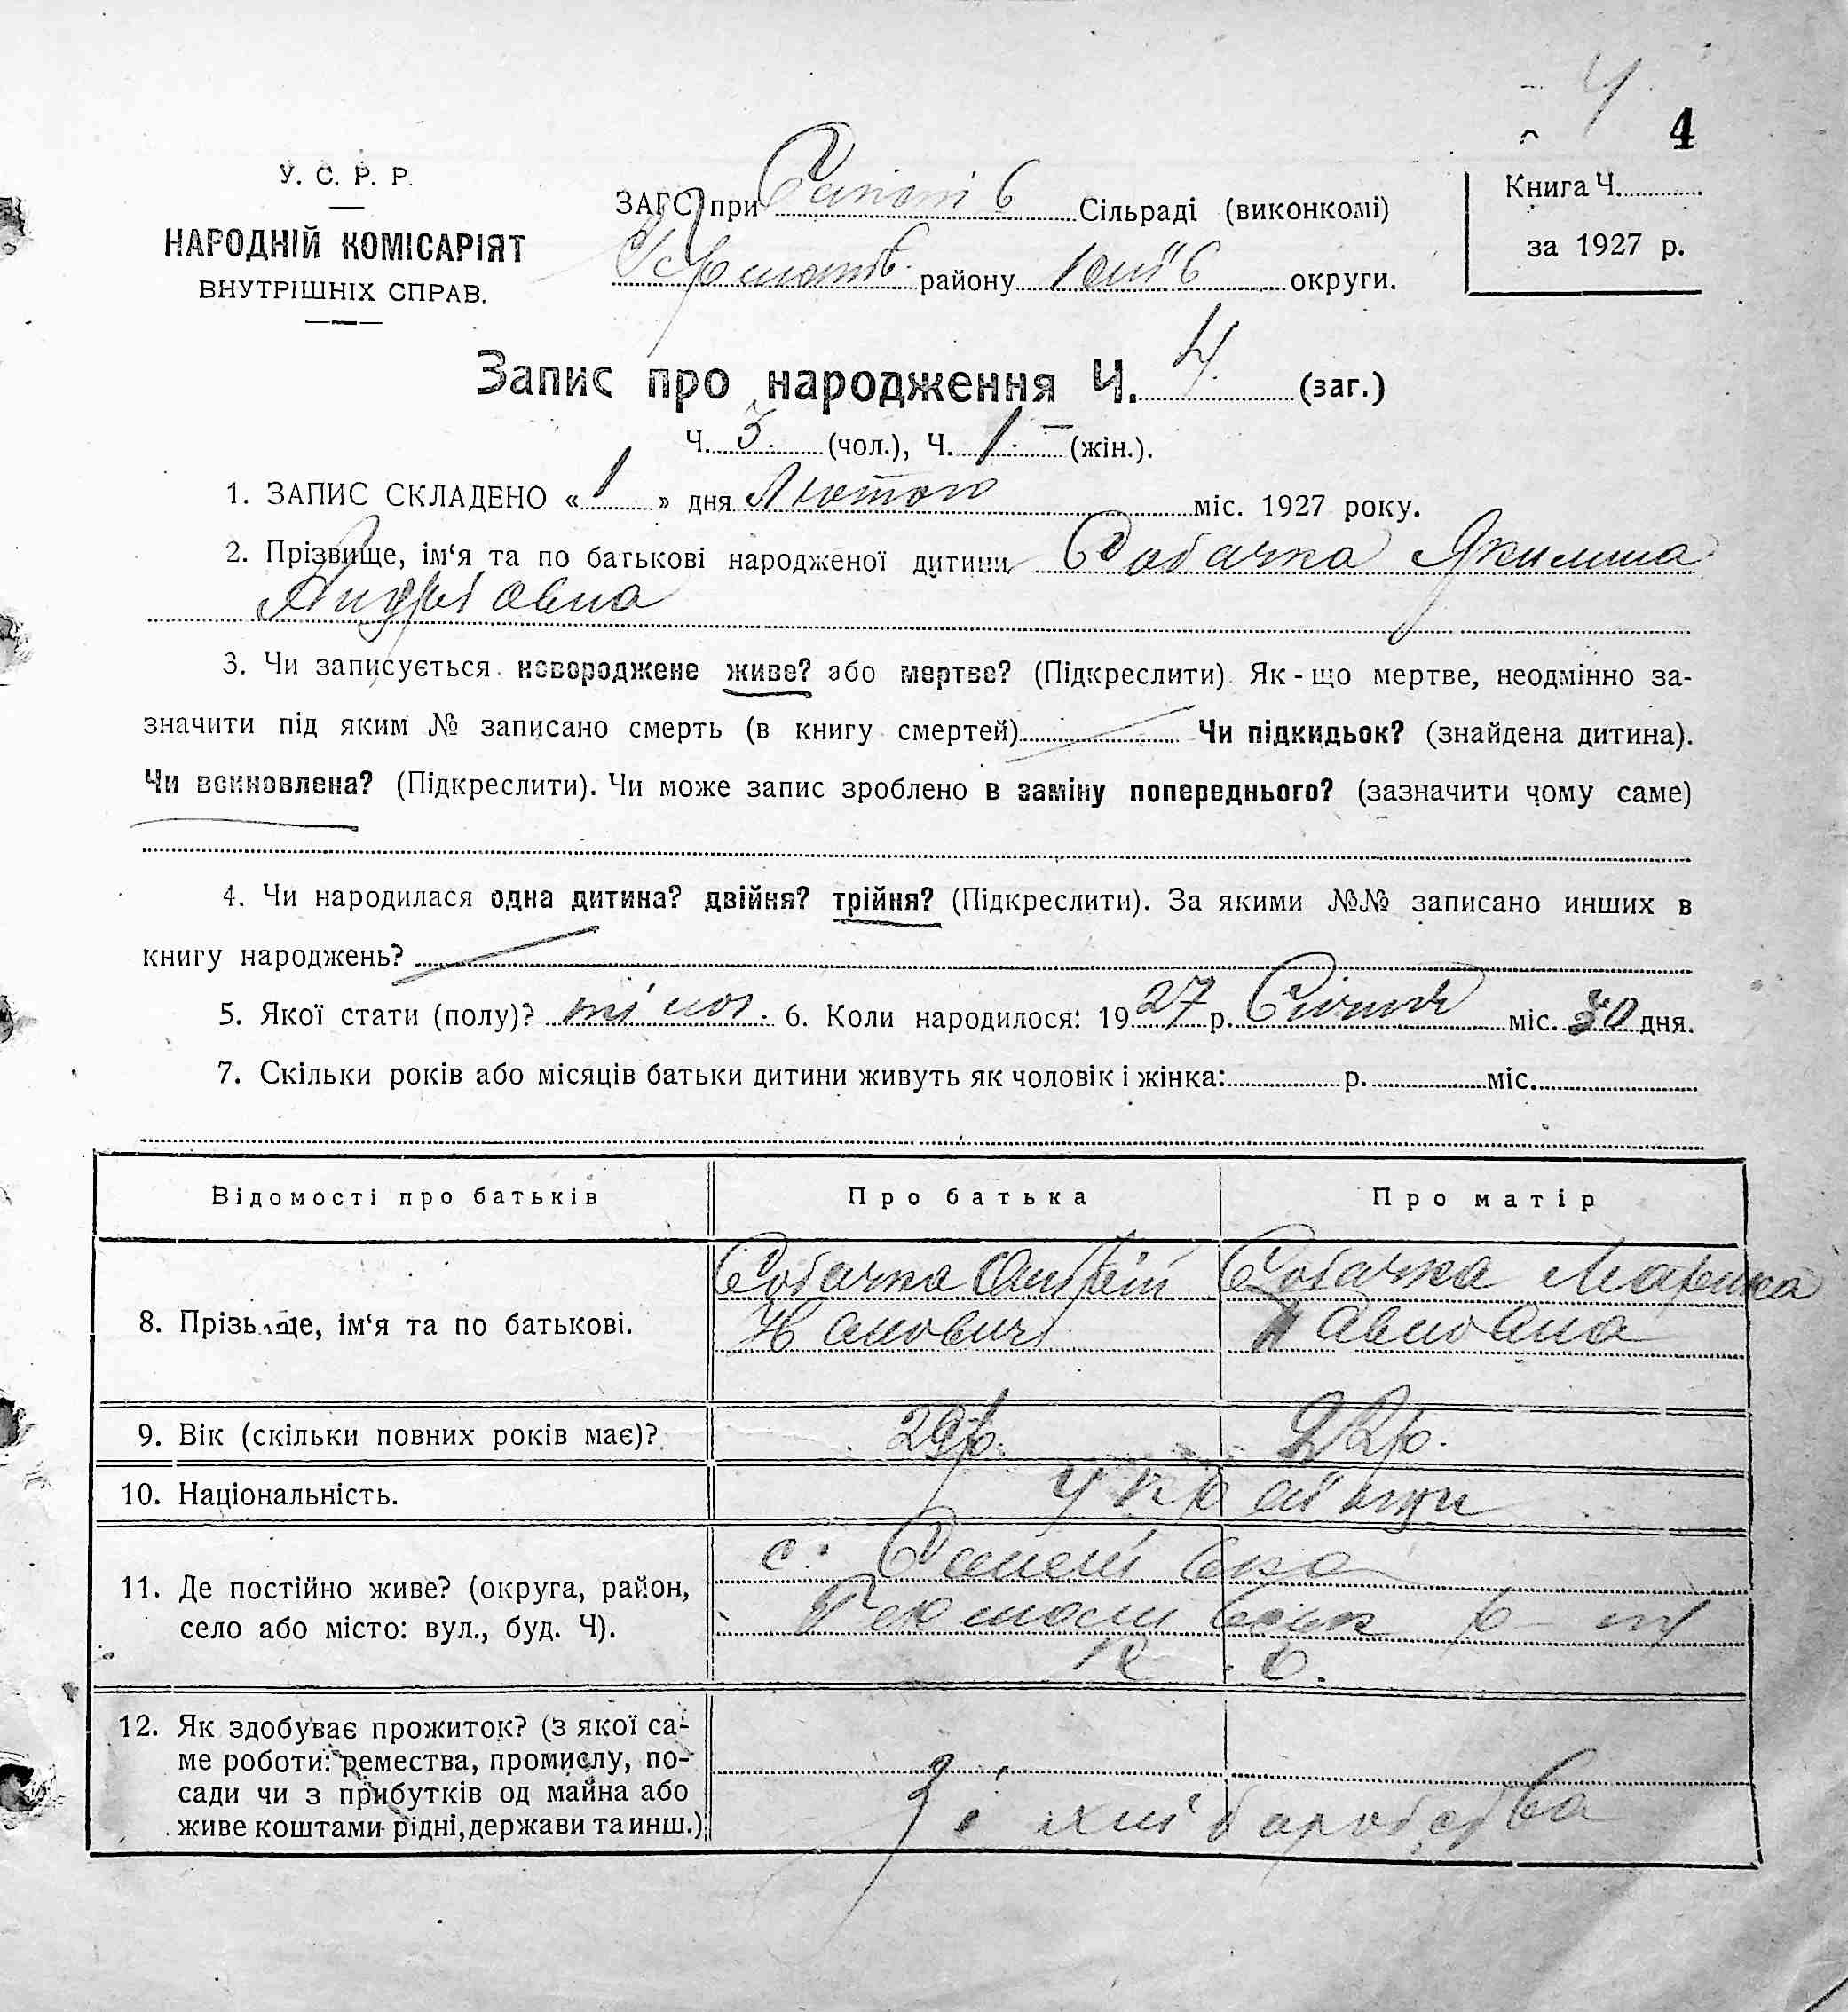 4
4
У. С. Р. Р.
НАРОДНІЙ КОМІСАРІЯТ
ВНУТРІШНІХ СПРАВ.
ЗАГС при Сільраді (виконкомі)
району Київ округи.
Книга Ч.
за 1927 р.
Запис про народження Ч. 4. (заг.)
Ч. 3. (чол.), Ч. 1. — (жін.).
1. ЗАПИС СКЛАДЕНО « 1 » дня Лютого міс. 1927 року.
2. Прізвище, ім‘я та по батькові народженої дитини Собачка Якилина
Андріівна
3. Чи записується новороджене живе? або мертве? (Підкреслити). Як-що мертве, неодмінно за-
значити під яким № записано смерть (в книгу смертей) Чи підкидьок? (знайдена дитина).
Чи всиновлена? (Підкреслити). Чи може запис зроблено в заміну попереднього? (зазначити чому саме)
4. Чи народилася одна дитина? двійня? трійня? (Підкреслити). За якими №№ записано инших в
книгу народжень?
5. Якої стати (полу)? жіноч. 6. Коли народилося: 1927 р. Січня міс. 30 дня.
7. Скільки років або місяців батьки дитини живуть як чоловік і жінка: р. міс.
Відомості про батьків Про батька Про матір
8. Прізвище, ім‘я та по батькові. Собачка Андрій Собачка Марика
Іванович Павловна
9. Вік (скільки повних років має)? 29 р. 22 р.
10. Національність. українци
11. Де постійно живе? (округа, район, с.
село або місто: вул., буд. Ч). р-ну
К. О.
12. Як здобуває прожиток? (з якої са-
ме роботи: ремества, промислу, по-
сади чи з прибутків од майна або
живе коштами рідні, держави та инш.) Зі хліборобства